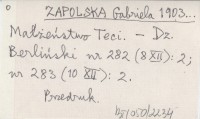 ZAPOLSKA Gabriela 1903...
Małżeństwo Teci. - Dz.
Berliński nr 282 (8 XII): 2;
nr 283 (10 XII): 2.
Przedruk.